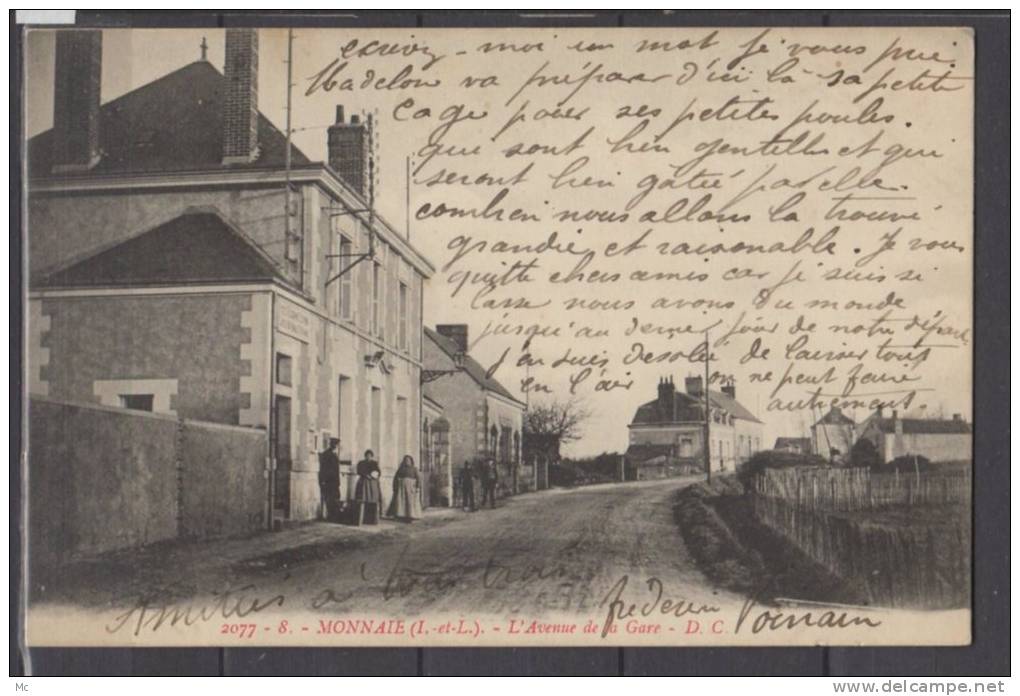 excrivez - moi un mot je vous prie
Madelon va préparer d'ici là sa petite
cage pour ses petites poules.
qui sont bien gentilles et qui
seront bien gatée par elle.
combien nous allons la trouvé
grandie et raisonable. Je vous
quitte chers amis car je suis si
lasse nous avons du monde
jusqu'au dernier jour de notre départ
j'en suis désolée de laisser tout
en l'air on ne peut faire
autrement.
Amitiés à tous trois
2077 - 8. - MONNAIE (I.-et-L.). - L'Avenue de la Gare - D. C.
Mc
www.delcampe.net